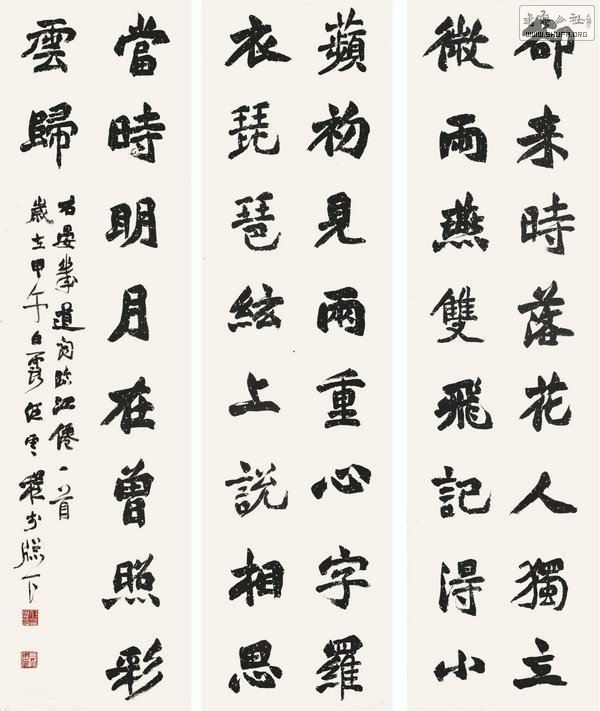 卻来時落花人獨立
微雨燕雙飛記得小
蘋初見兩重心字羅
衣琵琶絃上說相思
當時明月在曾照彩
雲歸
右晏幾道詞臨江僊一首
歲在甲午白露
WWW.SHUFA.ORG